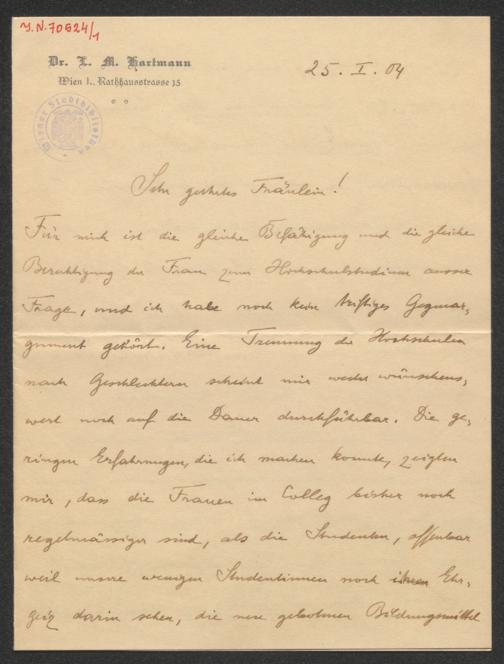 J.N. 70524/1
Dr. L. M. Hartmann
Wien I., Rathhausstrasse 15
25. I. 04
Wiener Stadtbibliothek
Sehr geehrtes Fräulein!
Für mich ist die gleiche Befähigung und die gleiche
Berechtigung der Frau zum Hochschulstudium ausser
Frage, und ich habe noch kein triftiges Gegenar-
gument gehört. Eine Trennung der Hochschulen
nach Geschlechtern scheint mir weder wünschens-
wert noch auf die Dauer durchführbar. Die ge-
ringen Erfahrungen, die ich machen konnte, zeigten
mir, dass die Frauen im Colleg bisher noch
regelmässiger sind, als die Studenten, offenbar
weil unsre wenigen Studentinnen noch ihren Ehr-
geiz darin sehen, die neu gebotenen Bildungsmittel